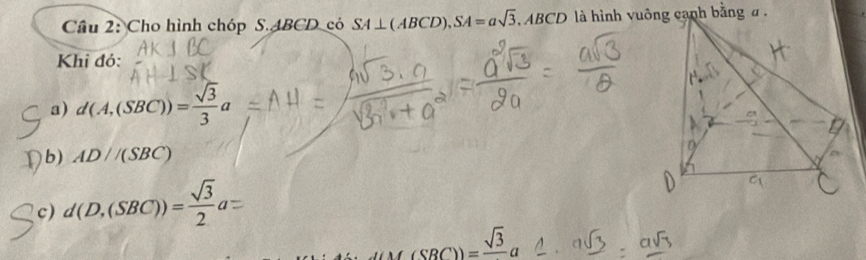 Câu 2: Cho hình chóp S.ABCD có SA ⊥ (ABCD), SA = a√3, ABCD là hình vuông cạnh bằng a .
Khi đó:
AK ⊥ BC
AH ⊥ SK
a) d(A,(SBC)) = √3/3 a = AH = a√3 . a / √(3a² + a²) = a²√3 / 2a = a√3 / 2
S
b) AD//(SBC)
D
c) d(D,(SBC)) = √3/2 a =
S
(SBC)) = √3 a 1 . a√3 = a√3
H
A
a
B
D
a
C